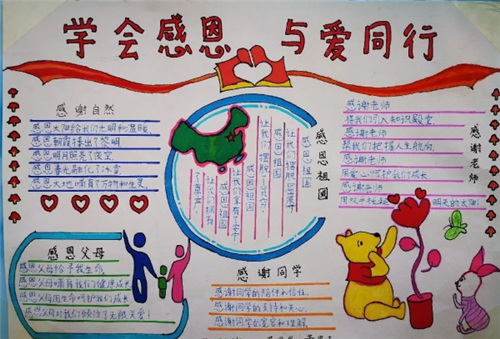 学会感恩 与爱同行
感谢自然
感恩太阳给我们光明和温暖
感恩朝霞捧出了黎明
感恩明月照亮了夜空
感恩春光融化了冰雪
感恩大地哺育了万物和生灵
感恩祖国
感恩祖国
让我们摆脱
感恩祖国
感恩祖国
感谢老师
感谢老师
将我们引入知识殿堂
感谢老师
帮我们把握人生航向
感谢老师
用爱心呵护我们成长
感谢老师
明天的太阳
感恩父母
感恩父母给予我生命
感恩父母哺育我们健康成长
感恩父母用生命呵护我们成长
感恩父母对我们倾注了无限关爱
感谢同学
感谢同学的陪伴和信任
感谢同学的支持和关心
感谢同学的宽容和理解